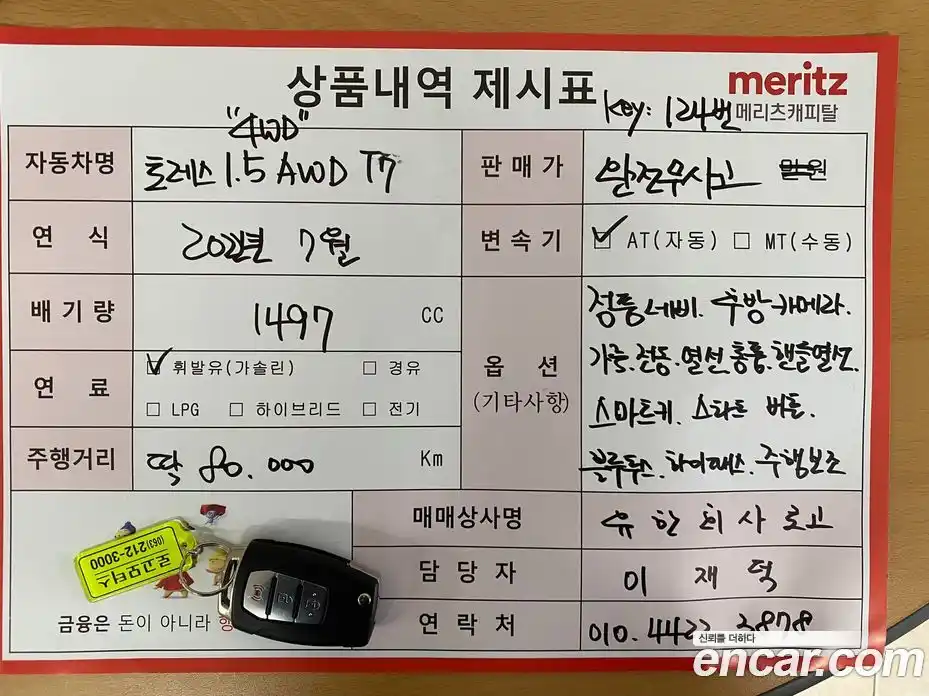 상품내역 제시표
meritz
메리츠캐피탈
Key: 124번
"4WD"
자동차명 토레스 1.5 AWD T7
판매가 완전무사고 만원
연 식 2022년 7월
변속기 ☑ AT(자동) ☐ MT(수동)
배기량 1497 CC
연 료 ☑ 휘발유(가솔린) ☐ 경유
☐ LPG ☐ 하이브리드 ☐ 전기
옵 션
(기타사항)
정품네비. 후방카메라.
가죽.전동.열선통풍.핸들열선.
스마트키. 스타트 버튼.
블루투스. 하이패스. 주행보조
주행거리 딱 80.000 Km
매매상사명 유한회사 로고
담당자 이재덕
연락처 010.4422.3878
로고모터스
(063)212-3000
금융은 돈이 아니라
신뢰를 더하다
encar.com